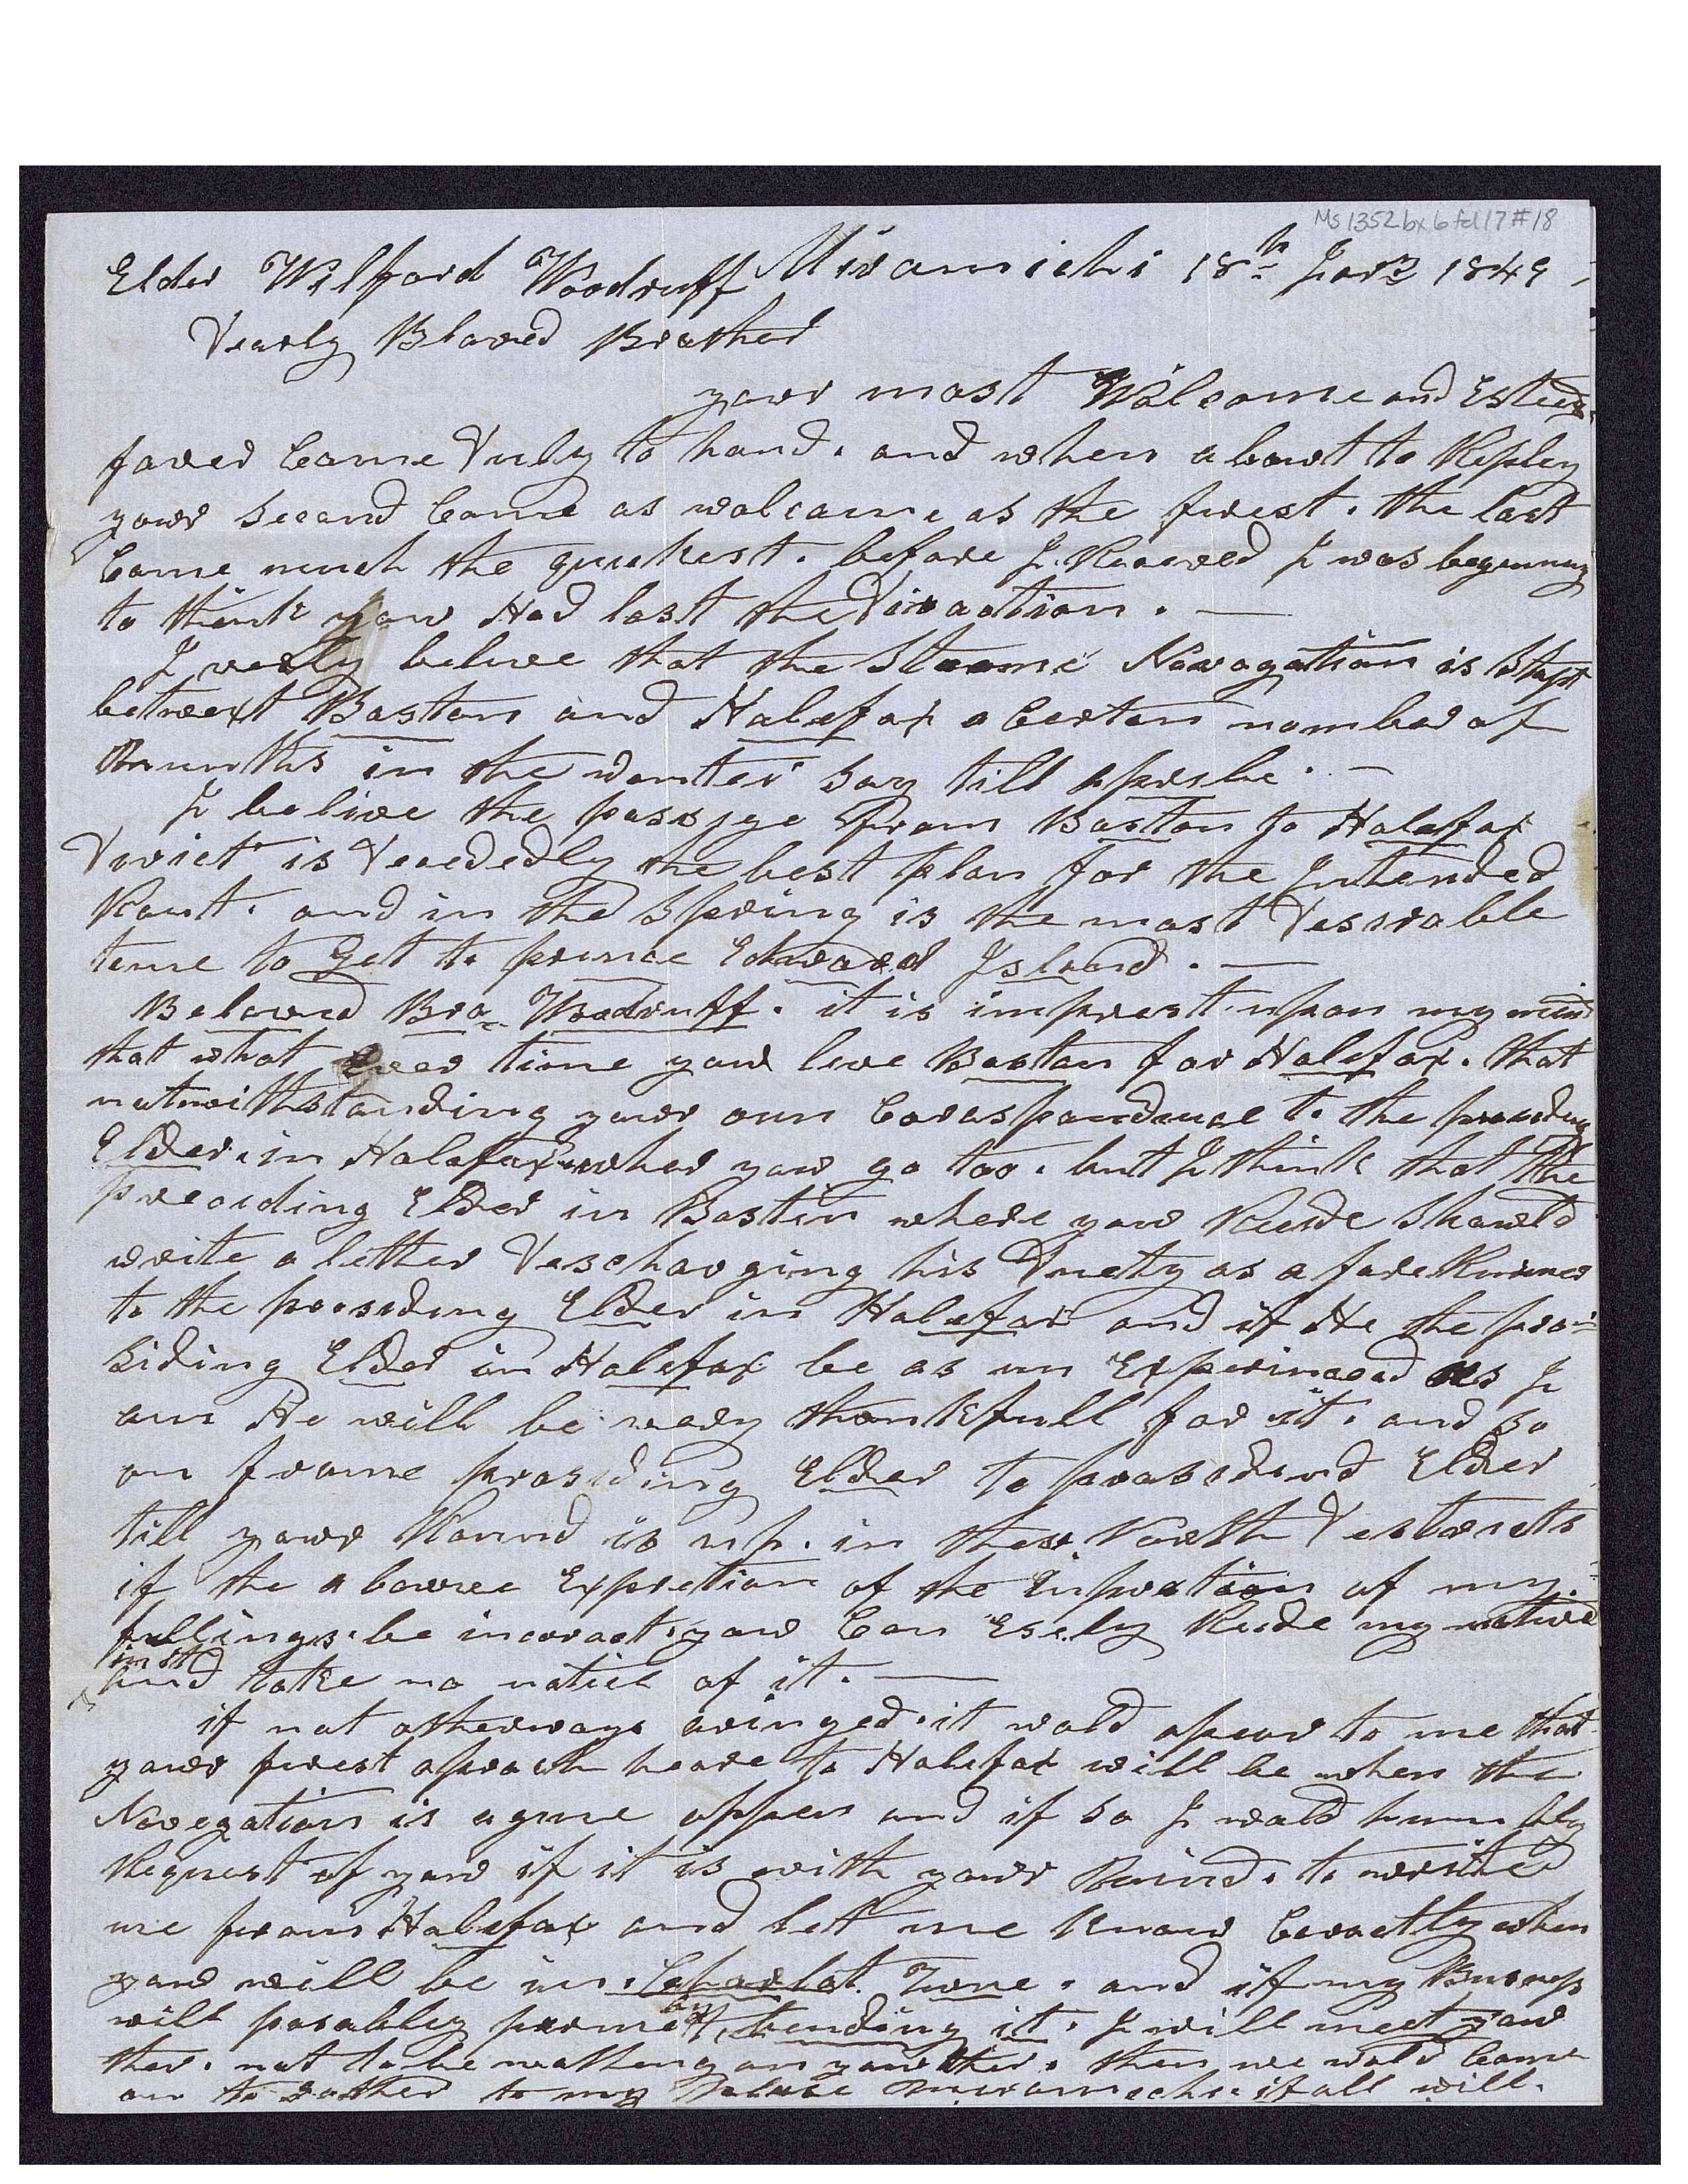 Ms 1352 bx 6 fd 17 #18
Elder Wilford Woodruff Miramichi 18th 1849
Dearly Bloved Brother
your most Walcome and
faver Came Duly to hand. and when abowt to Repley
yowr second Came as walcame as the furst. the last
Came much the quickest. before I Receved I was begynning
to think yow Had lost the Diraction. —
I verly beleve that the Steame Navagation is Stapt
betwext Bastan and Halefax a Certan nombar of
munths in the wenter say till
I belive the passage From Bastan to Halefax
Dirict is Decededly the best plan for the Intended
Rout. and in the Spring is the most Desirable
time to Get to prince Edward Island. —
Beloved Bro. Woodruff. it is imprest upon my mind
that what Ever time yow leve Bastan for Halefax. that
natwithstanding yowr own Coraspandance to the presiding
Elder. in Halafax wher yow go too. but I think that the
preciding Elder in Bastin where yow Reside Shawld
write a letter Descharging his Duety as a fore Runner
to the presiding Elder in Halefax and if He the pre-
siding Elder in Halefax be as un Experinced as I
am He will be vary thankfull for it. and so
on frame prasiding Elder to prasidend Elder
till yowr Rownd is up. in thes North Destricts
if the abowve Expretion of the Inpretion of my
fellings. be incoract. yow Can Esely Reede my motive
in it
and take no natice of it. —
if nat atherways arinyed. it wald apear to me that
yowr furst aproach heare to Halefax will be when the
Navegation is agine oppen and if so I wald humbly
Request of yow if it is with yowr mind. to write
me fram Halefax and let me know Coractly when
yow will be in. Charlot Towne. and if my Busness
will posabley permit by bending it. I will meet yow
ther. nat to be wathing on yow ther. then we wald Came
on to Gather to my Miramechi if all will.